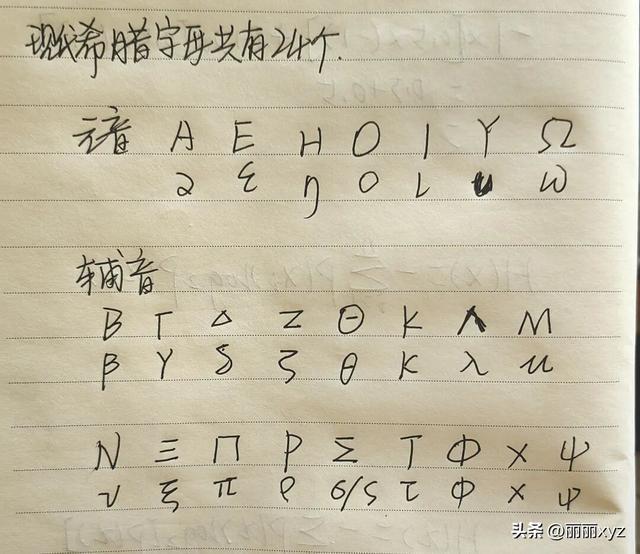 现代希腊字母共有24个.
元音 Α Ε Η Ο Ι Υ Ω
α ε η ο ι υ ω
辅音
Β Γ Δ Ζ Θ Κ Λ Μ
β γ δ ζ θ κ λ μ
Ν Ξ Π Ρ Σ Τ Φ Χ Ψ
ν ξ π ρ σ/ς τ φ χ ψ
头条 @丽丽xyz